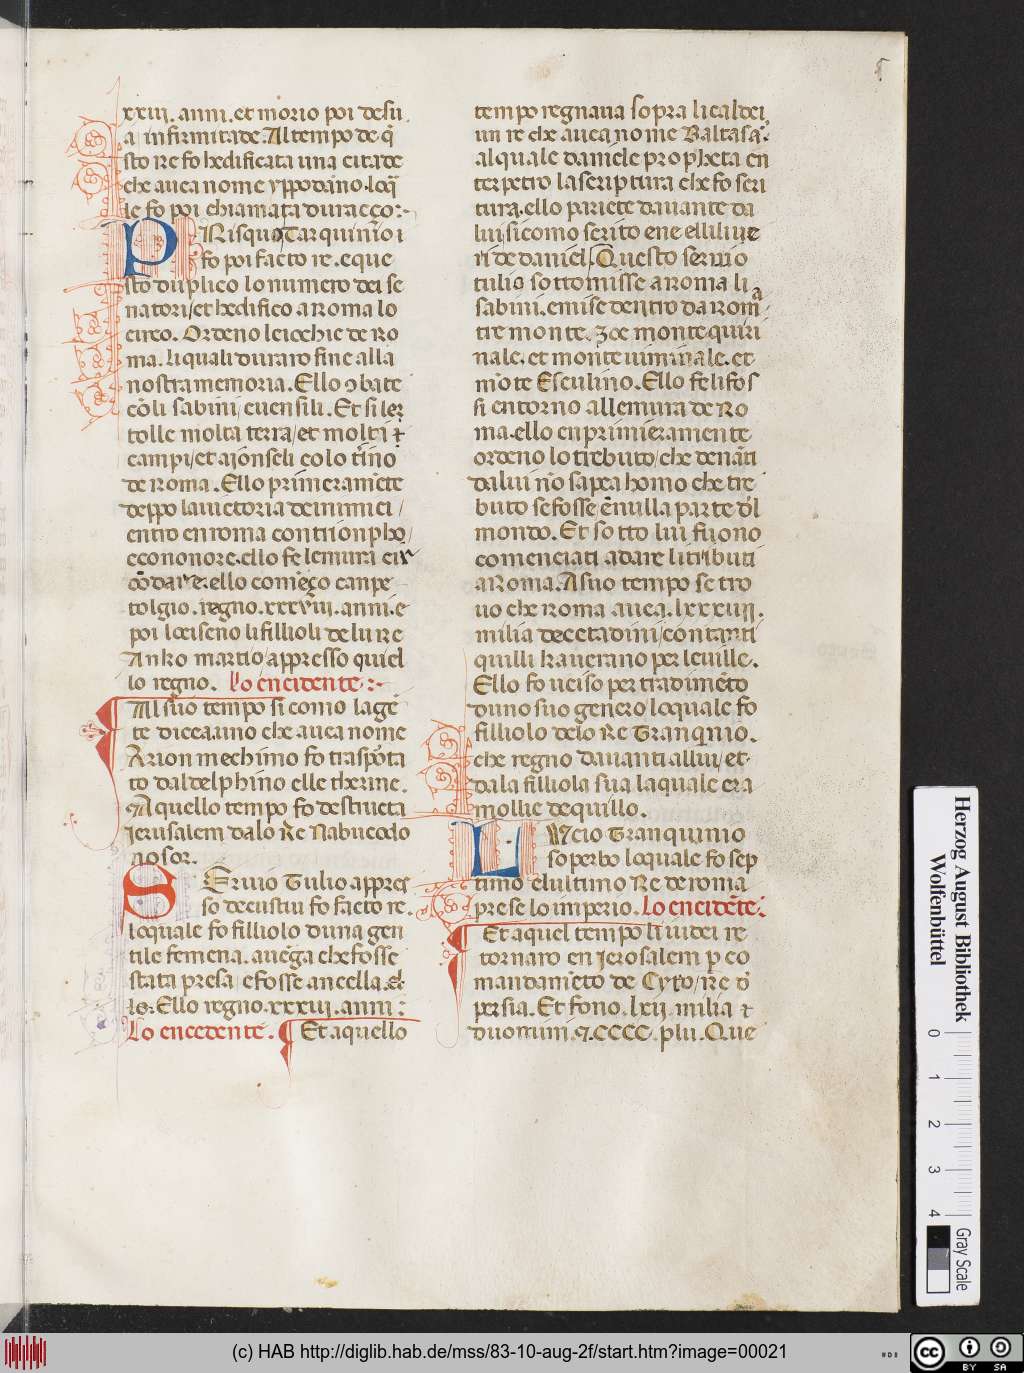 5
xxiij. anni. et morio poi de su
a infirmitade. Al tempo de q̄
sto re fo hedificata una citade
che auea nome yppodāno. loq̄
le fo poi chiamata duracço:-
PRisquo Tarquinio i
fo poi facto re. e que
sto duplico lo numero dei se
natori / et hedifico a roma lo
circo. Ordeno le iochie de Ro
ma. li quali duraro fine alla
nostra memoria. Ello ɔbate
cōli sabini e uensili. Et si ler
tolle molta terra / et molti ⁊
campi / et aionseli colo t̄ino
de roma. Ello primeram̄ete
deppo la uictoria de inimici /
entro en roma con trionpho /
ecc onore. ello fe le mura e ix
cōdare. ello com̄eço canpe
tolgio. regno. xxxviij. anni. e
poi lociseno li fillioli de lu re
Anko martio / appresso quiel
lo regno. Lo encidente:-
Al suo tempo si como la gē
te dicea. uno che auea nome
Arion mechimo fo traspōta
to dal delphino elle therine.
A quello tempo fo destructa
Jerusalem dalo Re Nabucodo
nosor.
SEruio Tulio appres
so de custiu fo facto re.
loquale fo filliolo duna gen
tile femena. auēga che fosse
stata presa e fosse ancella. el
lo. Ello regno. xxxiiij. anni:
Lo encedente. Et a quello
tempo regnaua sopra li caldei
un re che auea nome Baltasar̄.
al quale daniele propheta en
terpetro la scriptura che fo scri
tura. ello pariete dauante da
lui sicomo scrito ene elli liue
ri de daniel. Questo seruio
tulio sottomisse a roma li
sabini. e mise dentro da roma
tre monte. ʒoe monte quiri
nale. et monte uiminale. et
mōte Esculino. Ello fe li fos
si entorno alle mura de Ro
ma. ello en primieramente
ordeno lo trebuto / che denāti
da lui nō sapea homo che tre
buto se fosse ēnulla parte del
mondo. Et sotto lui fuono
comenciati a dare li tributi
a Roma. A suo tempo se tro
uo che roma auea. lxxxiiij.
milia de cetadini / contanti
quilli k auerano per le uille.
Ello fo ucciso per tradimēto
duno suo genero loquale fo
filliolo delo Re Tranquinio.
che regno dauanti allui / et
dala filliola sua laquale era
mollie de quillo.
LUcio Tranquinio
soperbo loquale fo sep
timo el ultimo Re de roma
prese lo imperio. Lo encidēte:
Et a quel tempo li iudei re
tornaro en Jerosalem p co
mandamēto de Cyro / re de
persia. Et fono. lxii. milia ⁊
duomini. ⁊. CCCC. plu. Que
Herzog August Bibliothek
Wolfenbüttel
0 1 2 3 4
Gray Scale
(c) HAB http://diglib.hab.de/mss/83-10-aug-2f/start.htm?image=00021
cc BY SA